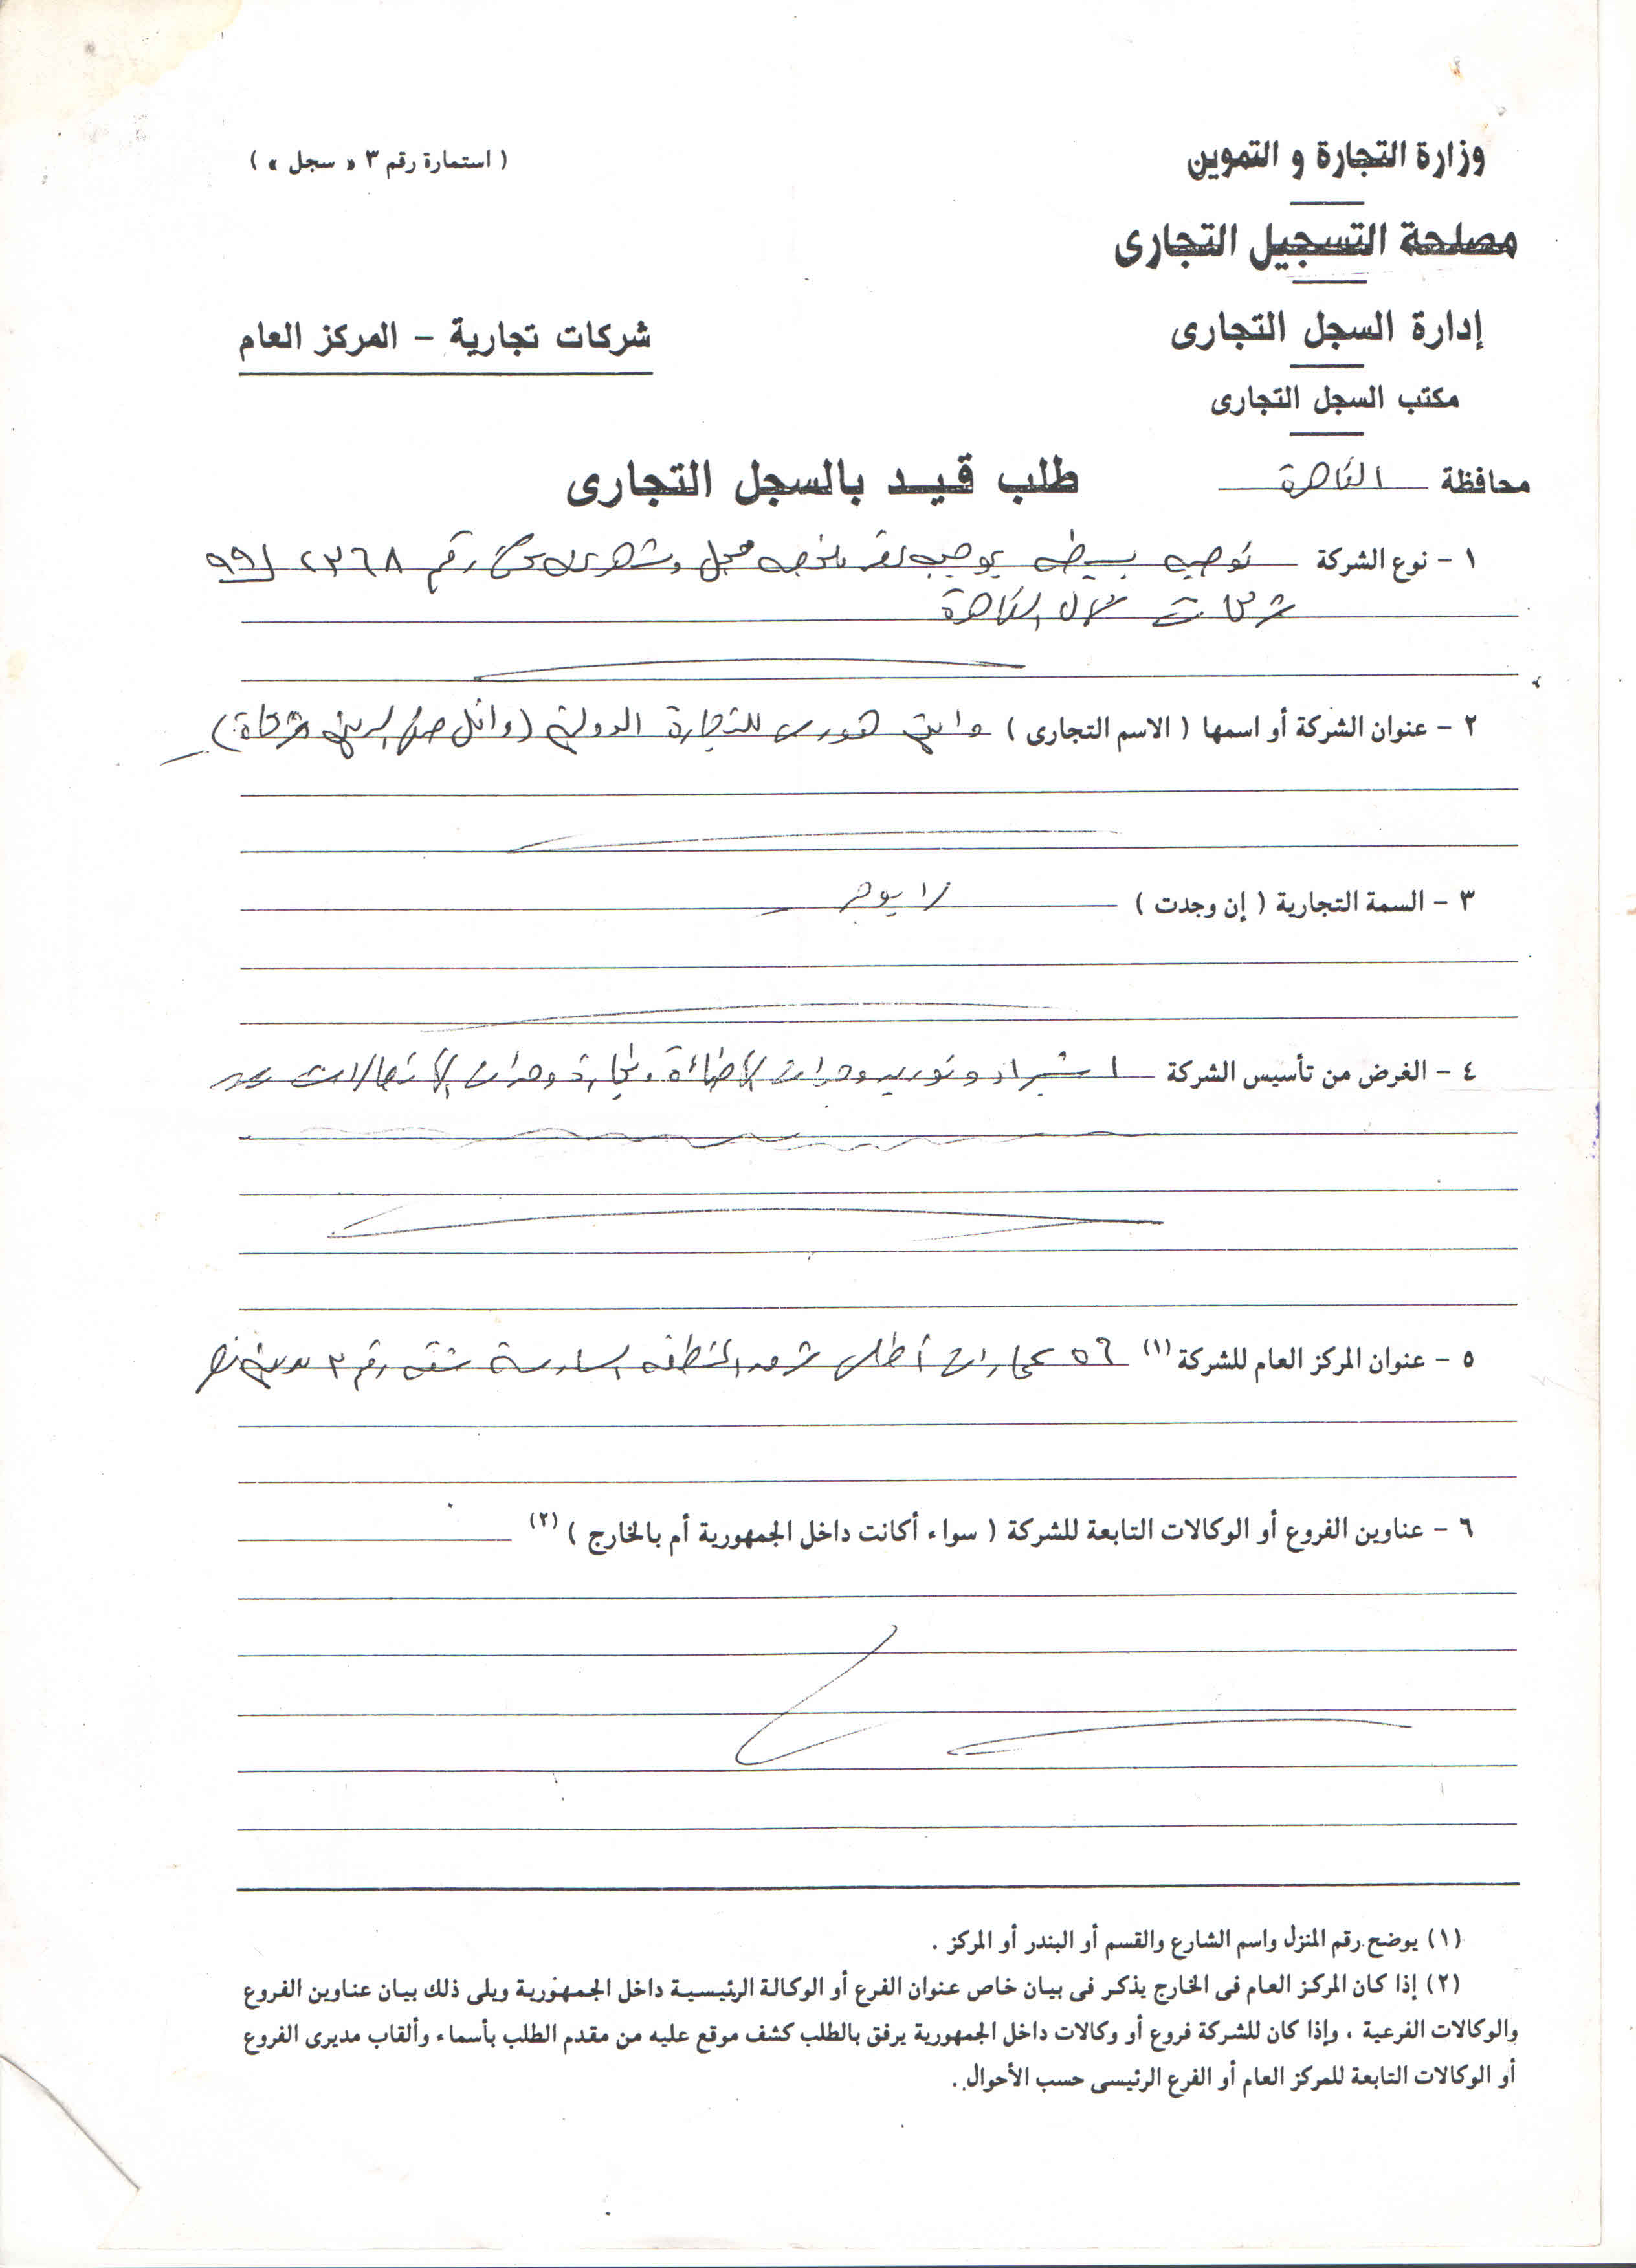 وزارة التجارة و التموين
( استمارة رقم ٣ « سجل » )
مصلحة التسجيل التجارى
إدارة السجل التجارى
شركات تجارية - المركز العام
مكتب السجل التجارى
محافظة القاهرة
طلب قيد بالسجل التجارى
١ - نوع الشركة توصيه بسيطه بموجب عقد ملخصه مسجل ومشهر رقم ٢٣٦٨ / ٩٩
شركات شمال القاهرة
٢ - عنوان الشركة أو اسمها ( الاسم التجارى ) للتجارة الدولية ( وائل صلاح الدين وشركاة )
٣ - السمة التجارية ( إن وجدت ) لا يوجد
٤ - الغرض من تأسيس الشركة استيراد وتوريد وحدات الاضاءة وتجارة وحدات الاتصالات
٥ - عنوان المركز العام للشركة (١) ٥٦ عمارات أطلس المنطقه السادسة شقه رقم ٣ مدينة نصر
٦ - عناوين الفروع أو الوكالات التابعة للشركة ( سواء أكانت داخل الجمهورية أم بالخارج ) (٢)
(١) يوضح رقم المنزل واسم الشارع والقسم أو البندر أو المركز .
(٢) إذا كان المركز العام فى الخارج يذكر فى بيان خاص عنوان الفرع أو الوكالة الرئيسية داخل الجمهورية ويلى ذلك بيان عناوين الفروع
والوكالات الفرعية ، وإذا كان للشركة فروع أو وكالات داخل الجمهورية يرفق بالطلب كشف موقع عليه من مقدم الطلب بأسماء وألقاب مديرى الفروع
أو الوكالات التابعة للمركز العام أو الفرع الرئيسى حسب الأحوال .